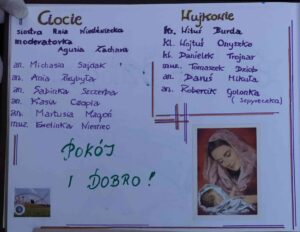 Ciocie
siostra Anna
moderatorka
Agusia Zachara
an. Michasia Sajdak
an. Ania Przybyła
an. Sabinka
an. Kasia Czapla
an. Martusia Magoń
muz. Ewelinka Niemiec
Wujkowie
ks. Wituś Burda
kl. Wojtuś Onyszko
kl. Danielek Trojnar
muz. Tomaszek Dziob
an. Daruś Mikuła
an. Robercik Golonka
POKÓJ
I DOBRO!